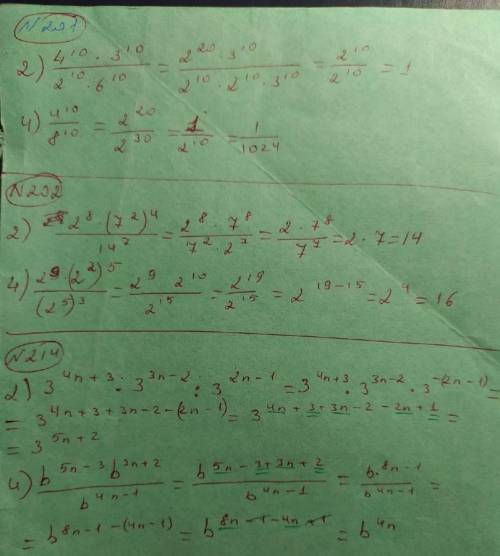 N 201
2) 4^10 · 3^10 / 2^10 · 6^10 = 2^20 · 3^10 / 2^10 · 2^10 · 3^10 = 2^10 / 2^10 = 1
4) 4^10 / 8^10 = 2^20 / 2^30 = 1 / 2^10 = 1 / 1024
N 202
2) 2^8 · (7^2)^4 / 14^7 = 2^8 · 7^8 / 7^7 · 2^7 = 2 · 7^8 / 7^7 = 2 · 7 = 14
4) 2^9 · (2^2)^5 / (2^5)^3 = 2^9 2^10 / 2^15 = 2^19 / 2^15 = 2^19-15 = 2^4 = 16
N 214
2) 3^4n+3 · 3^3n-2 : 3^2n-1 = 3^4n+3 · 3^3n-2 · 3^-(2n-1) =
= 3^4n+3+3n-2-(2n-1) = 3^4n+3+3n-2-2n+1 =
= 3^5n+2
4) b^5n-3 b^3n+2 / b^4n-1 = b^5n-3+3n+2 / b^4n-1 = b^8n-1 / b^4n-1 =
= b^8n-1-(4n-1) = b^8n-1-4n+1 = b^4n